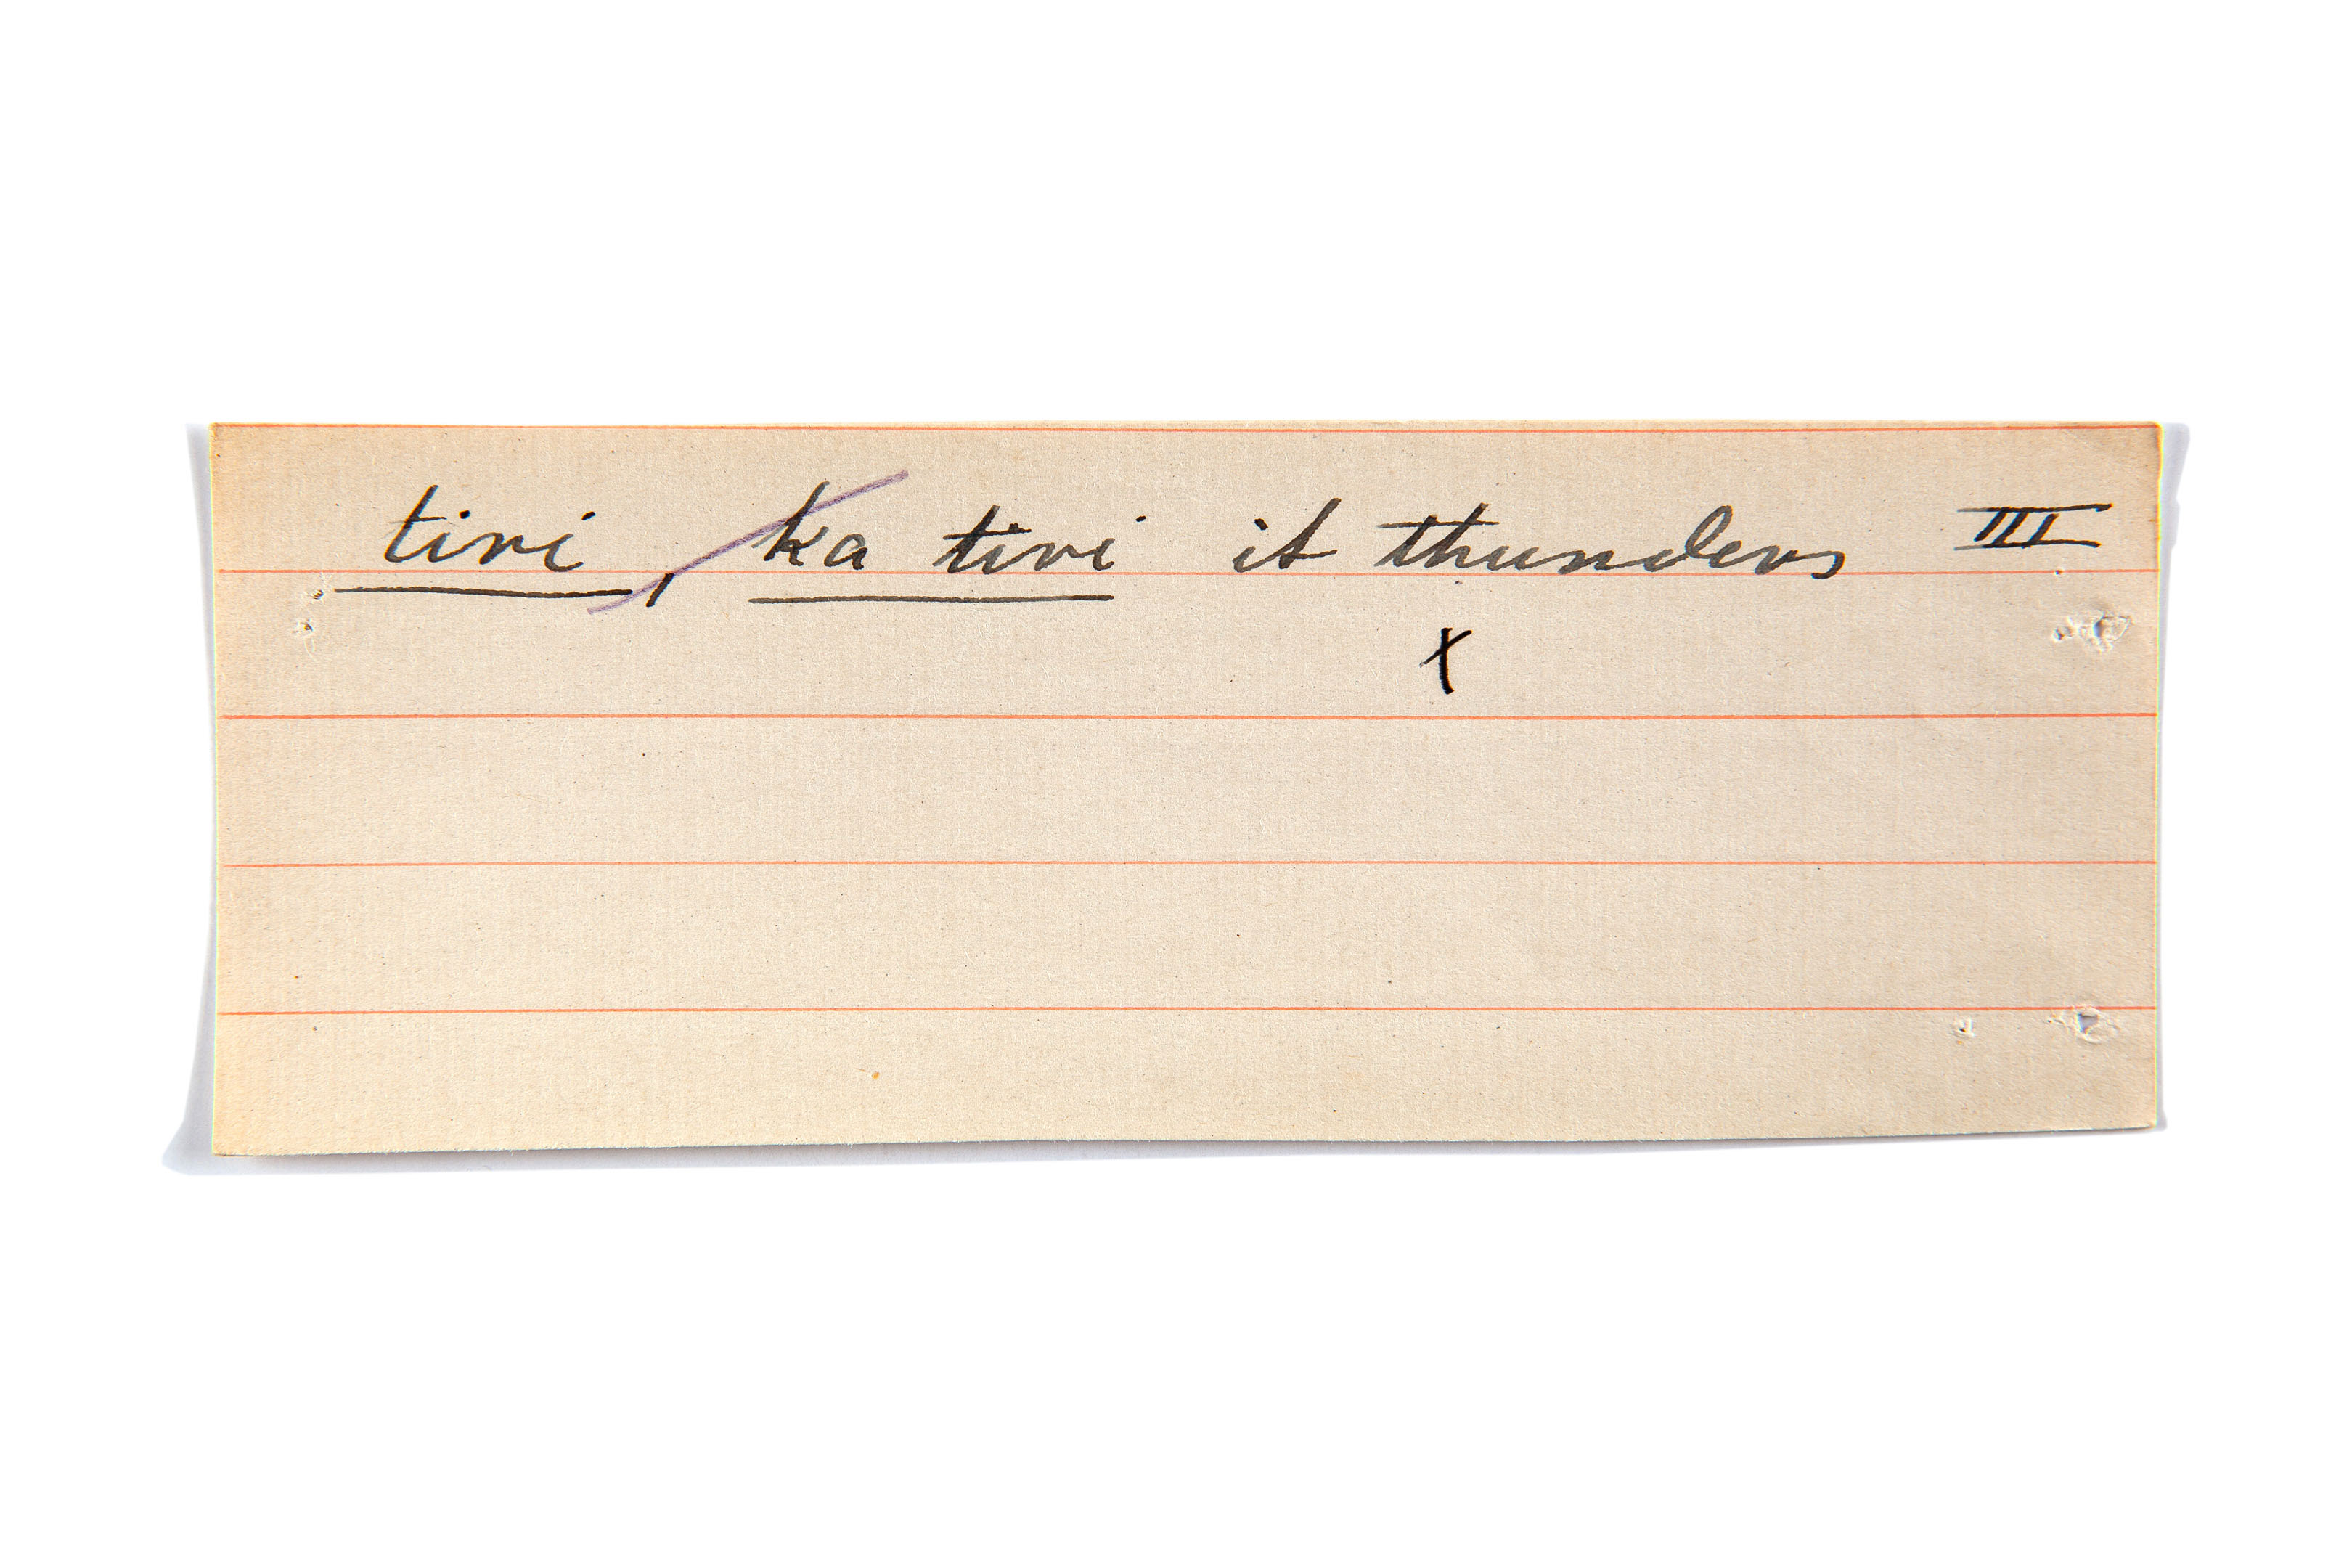 tiri, ka tiri it thunders III
x